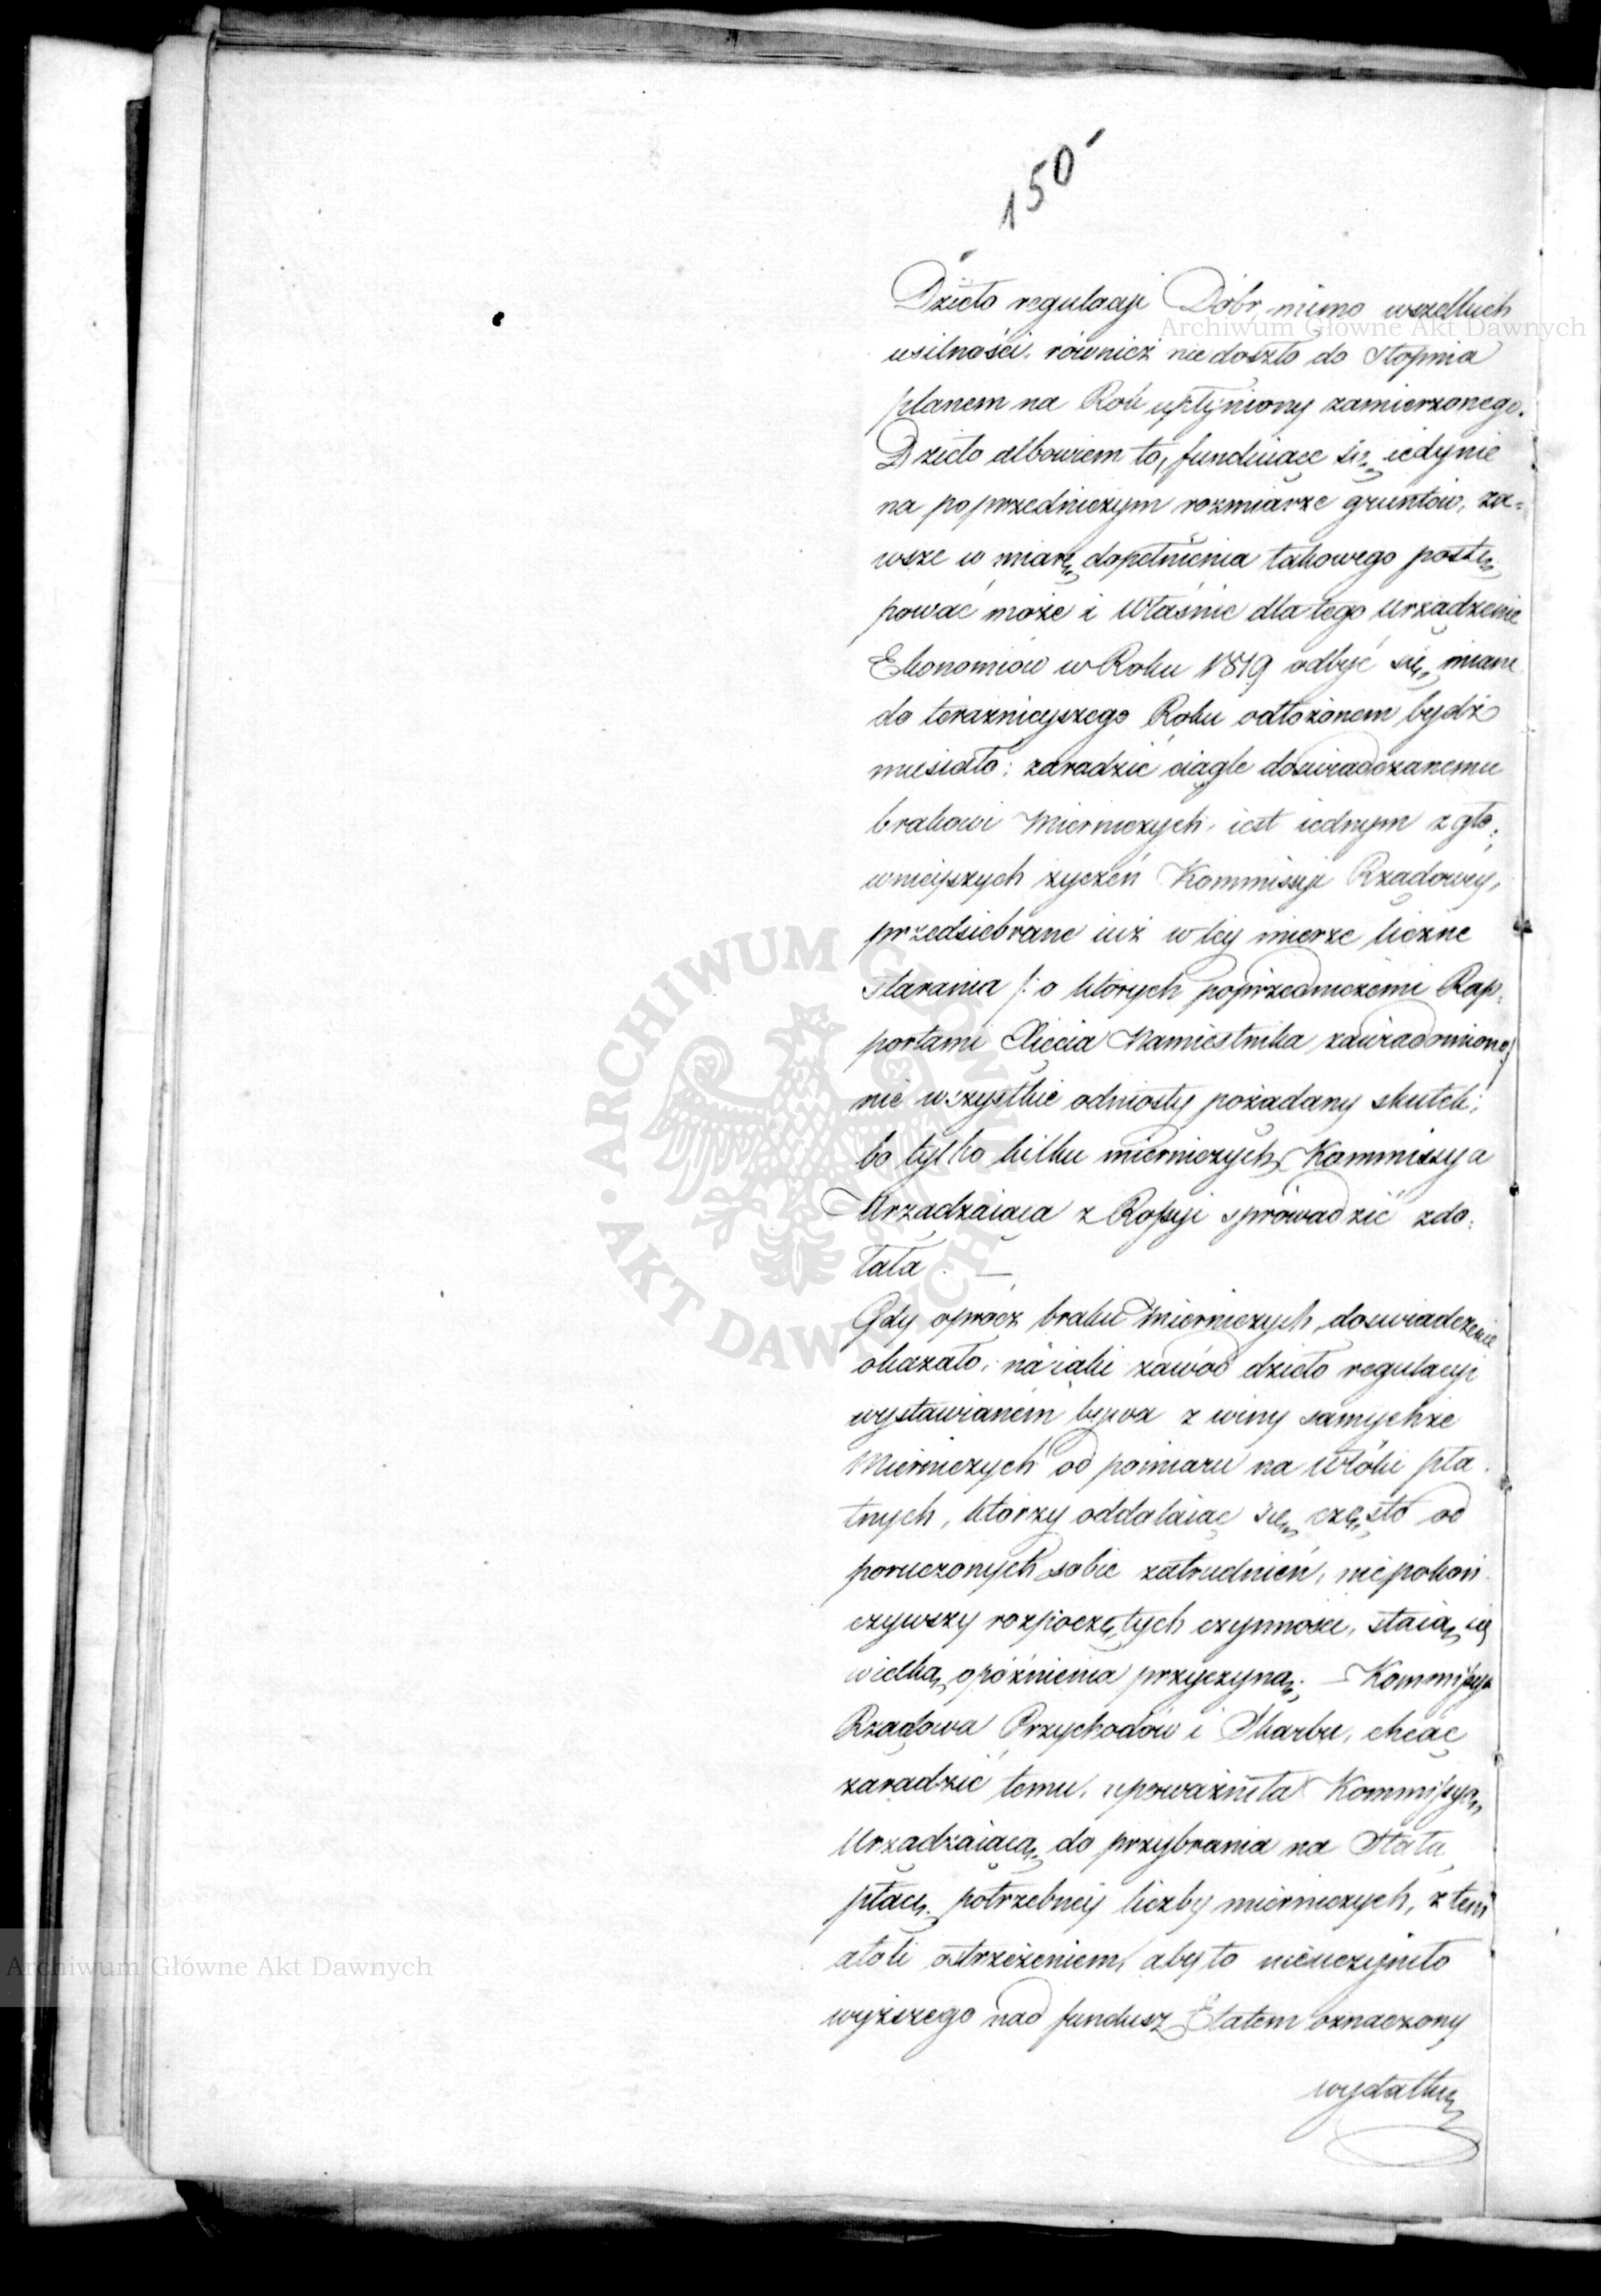 150
Dzieło regulacyi Dóbr, mimo wszelkich
usilności, również nie doszło do Stopnia
planem na Rok upłyniony zamierzonego.
Dzieło albowiem to, funduiące się iedynie
na poprzedniczym rozmiarze gruntów, za-
wsze w miarę dopełnienia takowego postę
pować może i właśnie dla tego urządzenie
Ekonomiów w Roku 1819 odbyć się miane
do teraznieyszego Roku odłożonem bydź
musiało; zaradzić ciągle doswiadczanemu
brakowi Mierniczych, iest iednym z głó-
wnieyszych życzeń Kommissyi Rządowey,
przedsiebrane iuż w tey mierze liczne
starania /: o których poprzedniczemi Rap-
portami Xięcia Namiestnika zawiadomiono/
nie wszystkie odniosły pożądany skutek;
bo tylko kilku mierniczych Kommissya
Urządzaiąca z Rossyi sprowadzić zdo-
łała. —
Gdy oprócz braku Mierniczych, doswiadczenie
okazało, na iaki zawód dzieło regulacyi
wystawianem bywa z winy samychże
Mierniczych od pomiaru na włóki pła
tnych, którzy oddalaiąc się często od
poruczonych sobie zatrudnień, nie pokoń
czywszy rozpoczętych czynności, staią się
wielką opóźnienia przyczyną; — Kommissya
Rządowa Przychodów i Skarbu, chcąc
zaradzić temu, upoważniła Kommissyą
Urządzaiącą do przybrania na Stałą
płacę potrzebney liczby mierniczych, z tem
atoli ostrzeżeniem, aby to nieuczyniło
wyższego nad fundusz Etatem oznaczony
wydatku
Archiwum Główne Akt Dawnych
ARCHIWUM GŁÓWNE · AKT DAWNYCH ·
Archiwum Główne Akt Dawnych